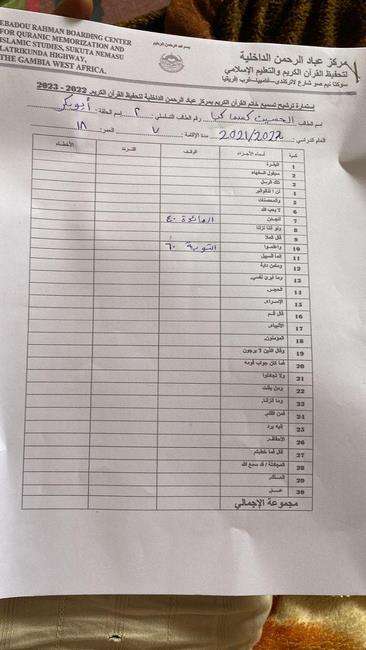 EBADOU RAHMAN BOARDING CENTER
FOR QURANIC MEMORIZATION AND
ISLAMIC STUDIES, SUKUTA NEMASU
LATRIKUNDA HIGHWAY,
THE GAMBIA WEST AFRICA.
مركز عباد الرحمن الداخلية
لتحفيظ القرآن الكريم والتعليم الإسلامي
استمارة ترشيح تسميع خاتم القرآن الكريم بمركز عباد الرحمن الداخلية لتحفيظ القرآن الكريم. 2022 - 2023
اسم الطالب الحسين رقم الطالب التسلسلي ٢ اسم الحلقة أبوبكر
العام الدراسي 2021/2022 مدة الإقامة: ٧ العمر: ١٨
كمية أسماء الأجزاء الوقف التردد الأخطاء
1 البقرة
2 سيقول السفهاء
3 تلك الرسل
4
5 والمحصنات
6 لا يحب الله
7 المائدة ٤٠
8 ولو أننا نزلنا
9 قال الملأ
10 واعلموا التوبة ٦٠
11 إنما السبيل
12 وما من دابة
13 وما أبرئ نفسي
14 الحجر
15 الإسراء
16 قال ألم
17 الأنبياء
18 المؤمنون
19 وقال الذين لا يرجون
20 فما كان جواب قومه
21 ولا تجادلوا
22 ومن يقنت
23 وما أنزلنا
24 فمن أظلم
25 إليه يرد
26 الأحقاف
27 قال فما خطبكم
28 المجادلة / قد سمع الله
29
30 عم
مجموعة الإجمالي